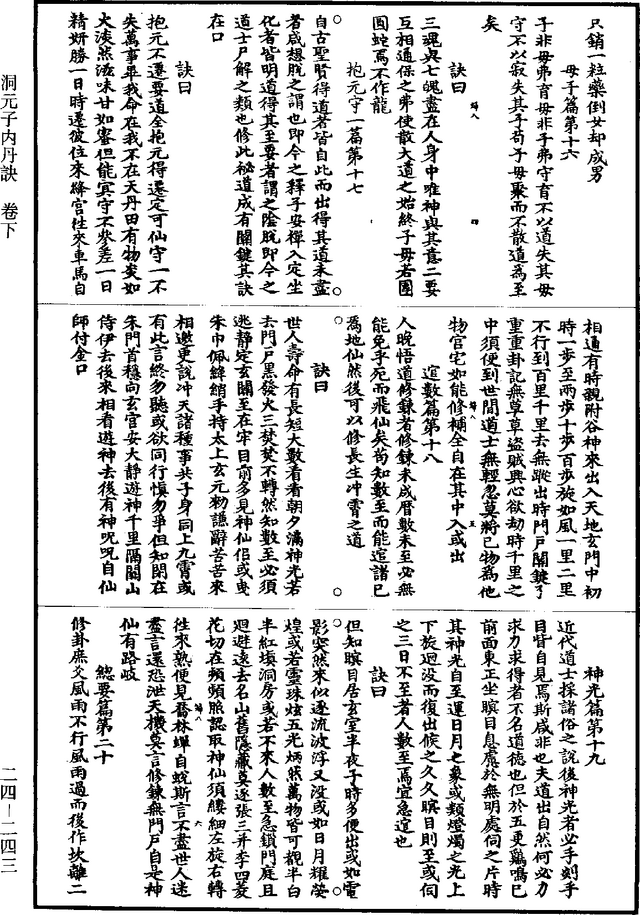 只銷一粒藥倒女却成男
母子篇第十六
子非母弗育母非子弗守育不以道失其母
守不以寂失其子苟子母聚而不散道為至
矣
訣曰
三魂與七魄盡在人身中唯神與其意二要
互相通保之弗使散大道之始終子母若團
圓蛇焉不作龍
抱元守一篇第十七
自古聖賢得道者皆自此而出得其道未盡
者咸想脫之謂也即今之釋子安禪入定坐
化者皆明道得其至要者謂之陰脫即今之
道士尸解之類也修此祕道成有關鍵其訣
在口
訣曰
抱元不遷要道全抱元得還定可仙守一不
失萬事畢我命在我不在天丹田有物矣如
大湊然滋味甘如蜜但能冥守不參差一日
精妍勝一日時遷彼往來絳宮往來車馬自
相通有時親附谷神來出入天地玄門中初
時一步至兩步十步百步旋如風一里二里
不行到百里千里去無蹤出時門戶關鍵了
重重卦記無草草盜賊興心欲劫時千里之
中須便到世間道士無輕忽莫將已物為他
物官宅如能修補全自在其中入或出
逭數篇第十八
人晚悟道修鍊者修鍊未成曆數未至必無
能免乎死而飛仙矣苟知數至而能逭諸已
為地仙然後可以修長生冲霄之道
訣曰
世人壽命有長短大數看看朝夕滿神光若
去門戶黑發火三焚焚不轉然知數至必須
逃靜定玄關至在牢目前多見神仙侣或曳
朱巾佩絳綃手持太上玄元物謙辭苦苦來
相邀更說冲天諸種事共子身同上九霄或
有此言終勿聽或欲同行慎勿爭但知閉在
朱門首穩向玄官安大靜遊神千里隔關山
侍伊去後來相看遊神去後有神呪呪自仙
師付金口
神光篇第十九
近代道士採諸俗之說後神光者必手刻乎
目皆自見焉斯咸非也夫道出自然何必力
求力求得者不名道德也但於五更雞鳴已
前面東正坐瞑目息慮於無明處伺之片時
其神光自至運日月之象或類燈燭之光上
下旋迴沒而復出候之久久瞑目則至或伺
之三日不至者人數至焉宜急逭也
訣曰
但知瞑目居玄室半夜子時多便出或如電
影突然來似逐流波浮又沒或如日月耀熒
煌或若靈珠炫五光炳然萬物皆可觀半白
半紅填洞房或若不來人數至急鎖門庭且
迴避遠去名山舊隱藏莫逐張三并李四菱
花切在頻頻照認取神仙須縷細左旋右轉
往來熟便見喬林蟬自蛻斯言不盡世人迷
盡言還恐泄天機莫言修鍊無門戶自是神
仙有路岐
總要篇第二十
修卦庶爻風雨不行風雨過而後作坎離二
洞元子内丹訣 卷下
二四—二四三